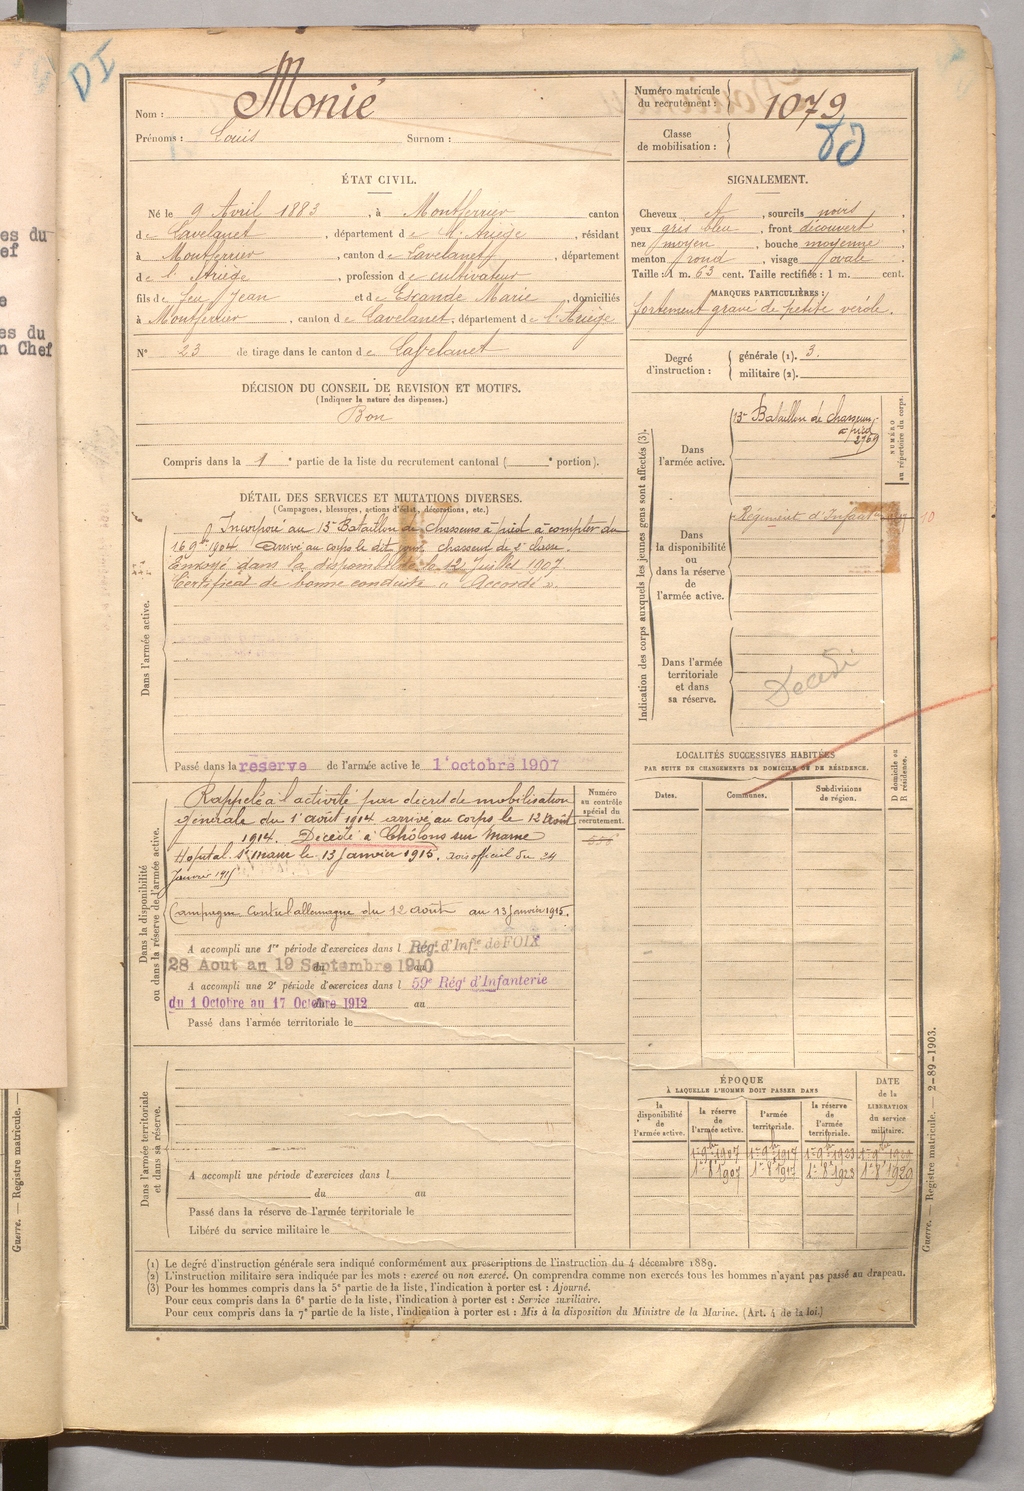 DI
es du
ef
e
es du
n Chef
Nom : Monié
Prénoms : Louis Surnom :
Numéro matricule du recrutement : 1079
Classe de mobilisation :
ÉTAT CIVIL.
Né le 9 Avril 1883, à Montferrier canton
de Lavelanet, département de l'Ariège, résidant
à Montferrier, canton de Lavelanet, département
de l'Ariège, profession de cultivateur
fils de feu Jean et de Escande Marie, domiciliés
à Montferrier, canton de Lavelanet, département de l'Ariège
N° 23 de tirage dans le canton de Lavelanet
SIGNALEMENT.
Cheveux et, sourcils noirs,
yeux gris bleu, front découvert,
nez moyen, bouche moyenne,
menton rond, visage ovale.
Taille : 1 m. 63 cent. Taille rectifiée : 1 m. cent.
MARQUES PARTICULIÈRES :
fortement gravé de petite vérole.
Degré d'instruction : générale (1). 3.
militaire (2).
DÉCISION DU CONSEIL DE REVISION ET MOTIFS.
(Indiquer la nature des dispenses.)
Bon
Compris dans la 1e partie de la liste du recrutement cantonal ( e portion).
DÉTAIL DES SERVICES ET MUTATIONS DIVERSES.
(Campagnes, blessures, actions d'éclat, décorations, etc.)
Dans l'armée active.
Incorporé au 15e Bataillon de chasseurs à pied à compter du
16 9bre 1904. Arrivé au corps le dit jour chasseur de 2e classe.
Envoyé dans la disponibilité le 12 juillet 1907.
Certificat de bonne conduite « Accordé ».
Passé dans la réserve de l'armée active le 1 octobre 1907
Dans la disponibilité
ou dans la réserve de l'armée active.
Numéro au contrôle spécial du recrutement.
Rappelé à l'activité par décret de mobilisation
générale du 1 août 1914 arrivé au corps le 12 août
1914. Décédé à Châlons sur Marne
Hopital le 13 Janvier 1915. avis officiel du 24
Janvier 1915
Campagne contre l'allemagne du 12 août au 13 janvier 1915.
A accompli une 1re période d'exercices dans l Rég. d'Infie de FOIX
28 Aout au 19 Septembre 1910
A accompli une 2e période d'exercices dans l 59e Régt d'Infanterie
du 1 Octobre au 17 Octobre 1912 au
Passé dans l'armée territoriale le
Dans l'armée territoriale
et dans sa réserve.
A accompli une période d'exercices dans l
du au
Passé dans la réserve de l'armée territoriale le
Libéré du service militaire le
Indication des corps auxquels les jeunes gens sont affectés (3).
NUMÉRO au répertoire du corps.
Dans l'armée active.
15e Bataillon de chasseurs
à pied
Dans la disponibilité ou dans la réserve de l'armée active.
Régiment d'Infanterie
Dans l'armée territoriale et dans sa réserve.
Décédé
LOCALITÉS SUCCESSIVES HABITÉES
PAR SUITE DE CHANGEMENTS DE DOMICILE OU DE RÉSIDENCE.
Dates. Communes. Subdivisions de région.
D domicile ou R résidence.
ÉPOQUE
À LAQUELLE L'HOMME DOIT PASSER DANS
DATE de la LIBÉRATION du service militaire.
la disponibilité de l'armée active. la réserve de l'armée active. l'armée territoriale. la réserve de l'armée territoriale.
1er 9bre 1907 1er 9bre 1917 1er 9bre 1923 1er 9bre 1929
1er 8bre 1907 1er 8bre 1917 1er 8bre 1923 1er 8bre 1929
(1) Le degré d'instruction générale sera indiqué conformément aux prescriptions de l'Instruction du 4 décembre 1889.
(2) L'instruction militaire sera indiquée par les mots : exercé ou non exercé. On comprendra comme non exercés tous les hommes n'ayant pas passé au drapeau.
(3) Pour les hommes compris dans la 5e partie de la liste, l'indication à porter est : Ajourné.
Pour ceux compris dans la 6e partie de la liste, l'indication à porter est : Service auxiliaire.
Pour ceux compris dans la 7e partie de la liste, l'indication à porter est : Mis à la disposition du Ministre de la Marine. (Art. 4 de la loi.)
Guerre. — Registre matricule. — 2-89-1903.
Guerre. — Registre matricule. —